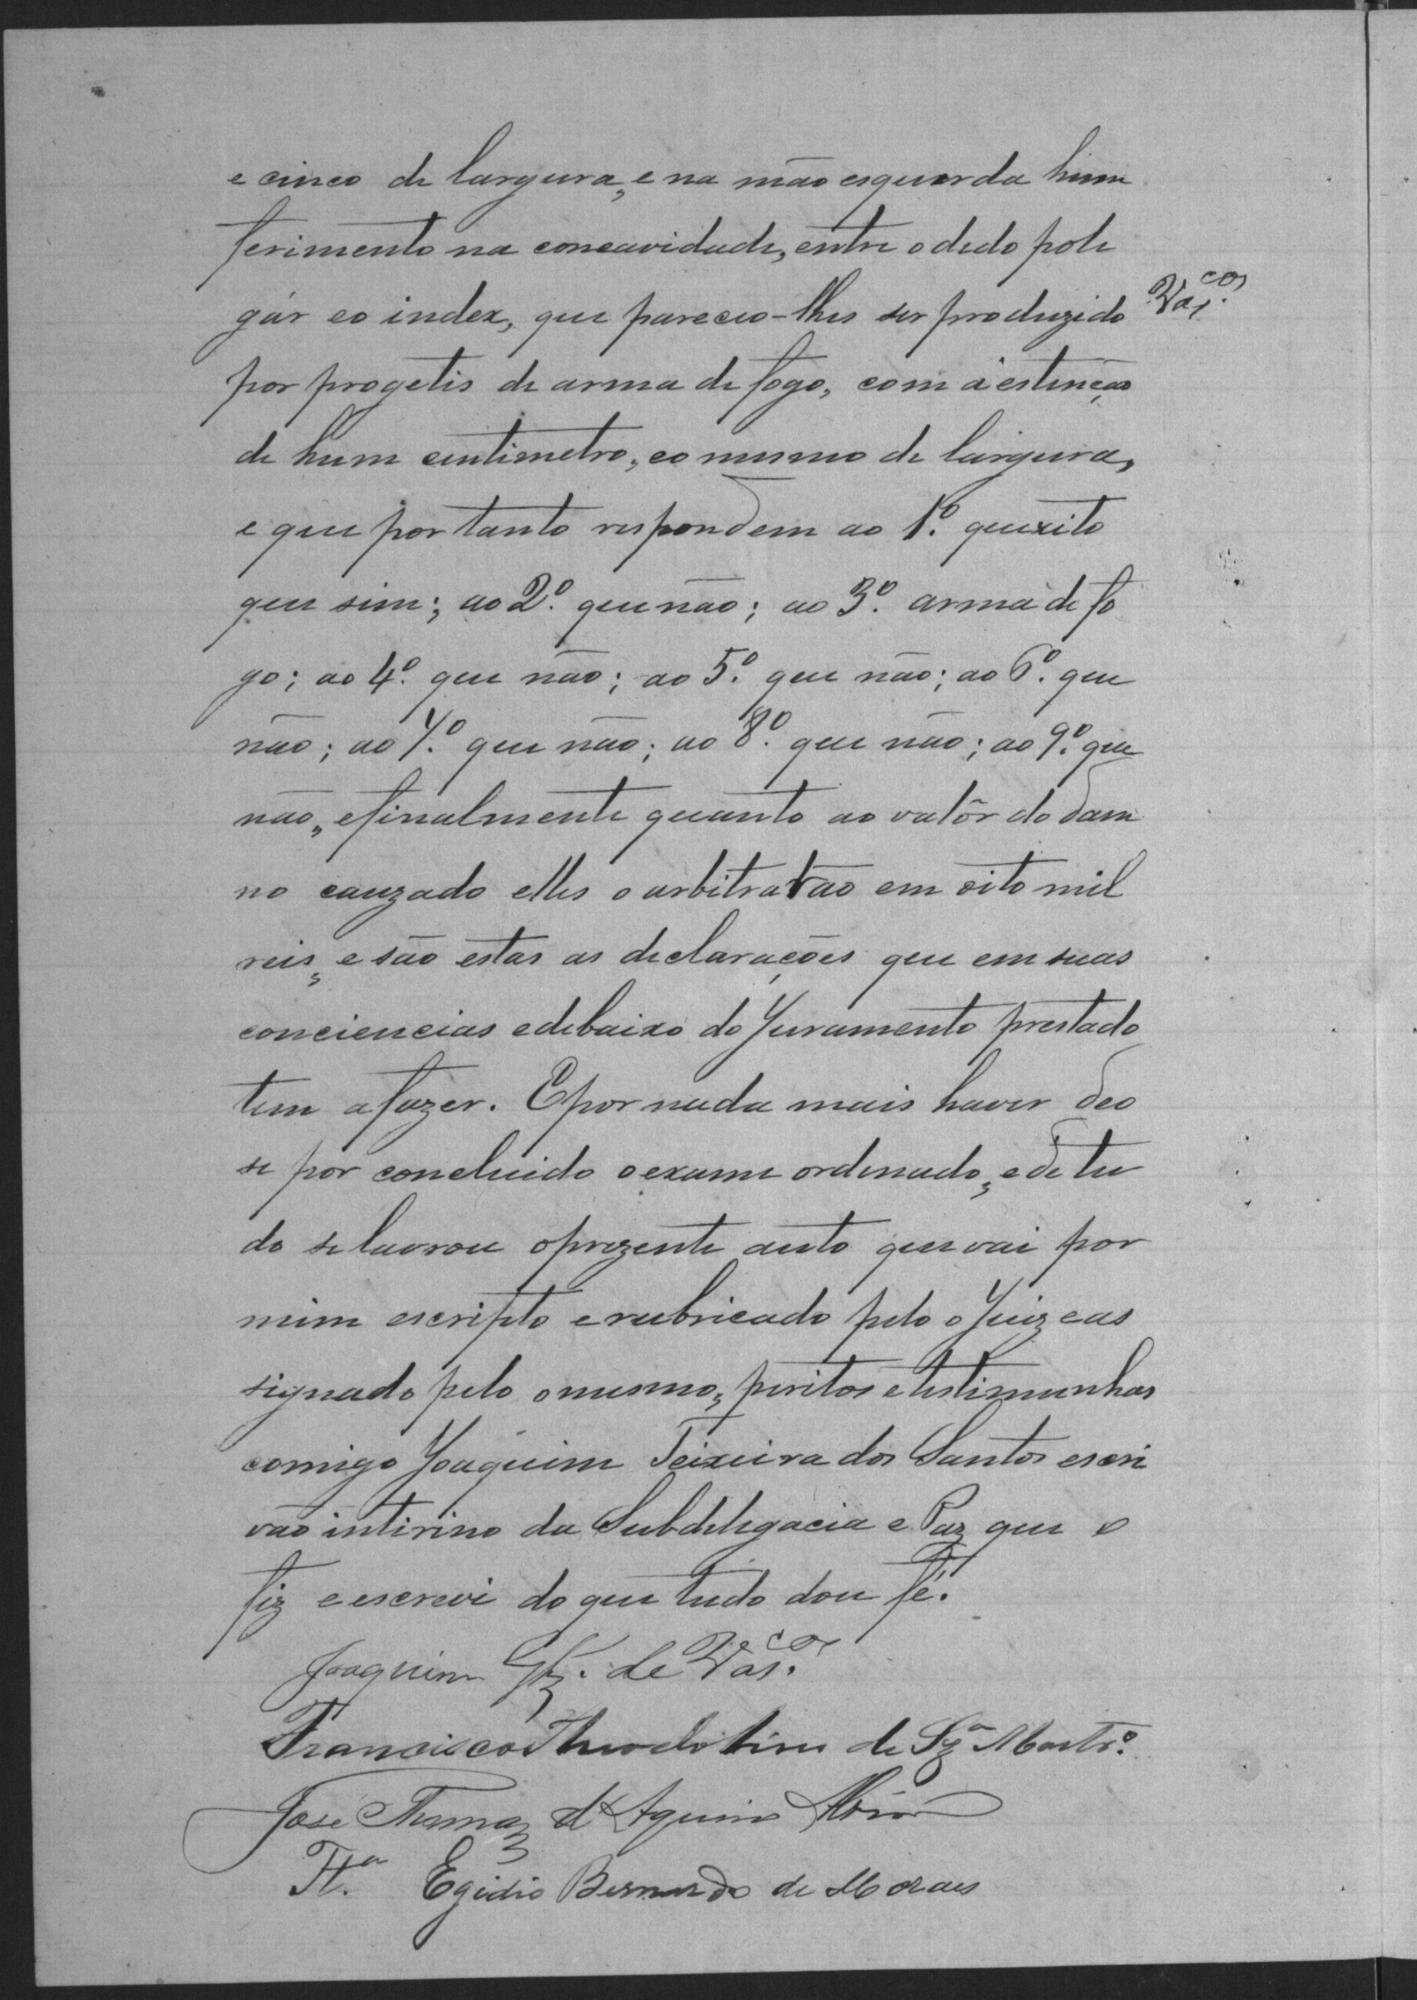 e cinco de largura, e na mão esquerda hum
ferimento na concavidade, entre o dedo pole
gár e o index, que pareceo-lhes ser produzido
Vas.cos
por progetis de arma de fogo, com a estenção
de hum centimetro, e o mesmo de largura,
e que por tanto respondem ao 1º. quexito
que sim; ao 2º. que não; ao 3º. arma de fo
go; ao 4º. que não; ao 5º. que não; ao 6º. que
não; ao 7º. que não; ao 8º. que não; ao 9º. que
não, e finalmente quanto ao valôr do dam
no cauzado elles o arbitravão em oito mil
reis, e são estas as declarações que em suas
conciencias e debaixo do Juramento prestado
tem a fazer. E por nada mais haver deo
se por concluido o exame ordenado, e de tu
do se lavrou o prezente auto que vai por
mim escripto e rubricado pelo o Juiz e as
signado pelo o mesmo, peritos e testimunhas
comigo Joaquim Teixeira dos Santos escri
vão intirino da Subdelegacia e Paz que o
fiz e escrevi do que tudo dou fé.
Joaquim Glz. de Vas.cos
Francisco de Sz.ª
José Thomaz d'Aquino
Tt.ª Egidio Bernardo de Moraes